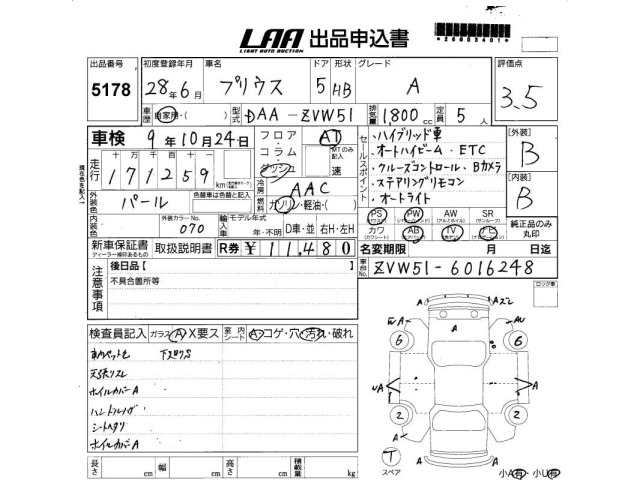 LAA 出品申込書
LIGHT AUTO AUCTION
*26003401*
出品番号 初度登録年月 車名 ドア 形状 グレード 評価点
5178 28年6月 プリウス 5 HB A 3.5
車歴 自家用・( ) 型式 DAA-ZVW51 排気量 1,800cc 定員 5人
車検 9年10月24日 フロア コラム ダッシュ AT MTのみ記入 速
走行 十万 万 千 百 十 一
171259 km
現在色を記入
外装色 パール 色替車は色替と記入
外装カラーNo. 070
冷房 AAC
ガソリン・軽油・( )
輸入車 モデル年式 年・不明 D車・並 右H・左H
新車保証書 取扱説明書 R券 ¥11,480
ディーラー捺印あるもの
セールスポイント
・ハイブリッド車
・オートハイビーム・ETC
・クルーズコントロール・Bカメラ
・ステアリングリモコン
・オートライト
[外装] B
[内装] B
PS PW AW SR
カワ AB TV ナビ
純正品のみ丸印
名変期限 月 日迄
車台No. ZVW51-6016248
注意事項
後日品[ ]
不具合箇所等
ロック車
検査員記入 ガラス A X要ス 室内シート A コゲ・穴・汚れ・破れ
天張リスレ
ホイルカバーA
ハンドルハゲ
シートヘタリ
ホイルカバーA
長さ cm 幅 cm 高さ cm 積載量 kg
A Aズレ
A
6 6
A A
2 2
A A
T
スペア
小A有・小U有